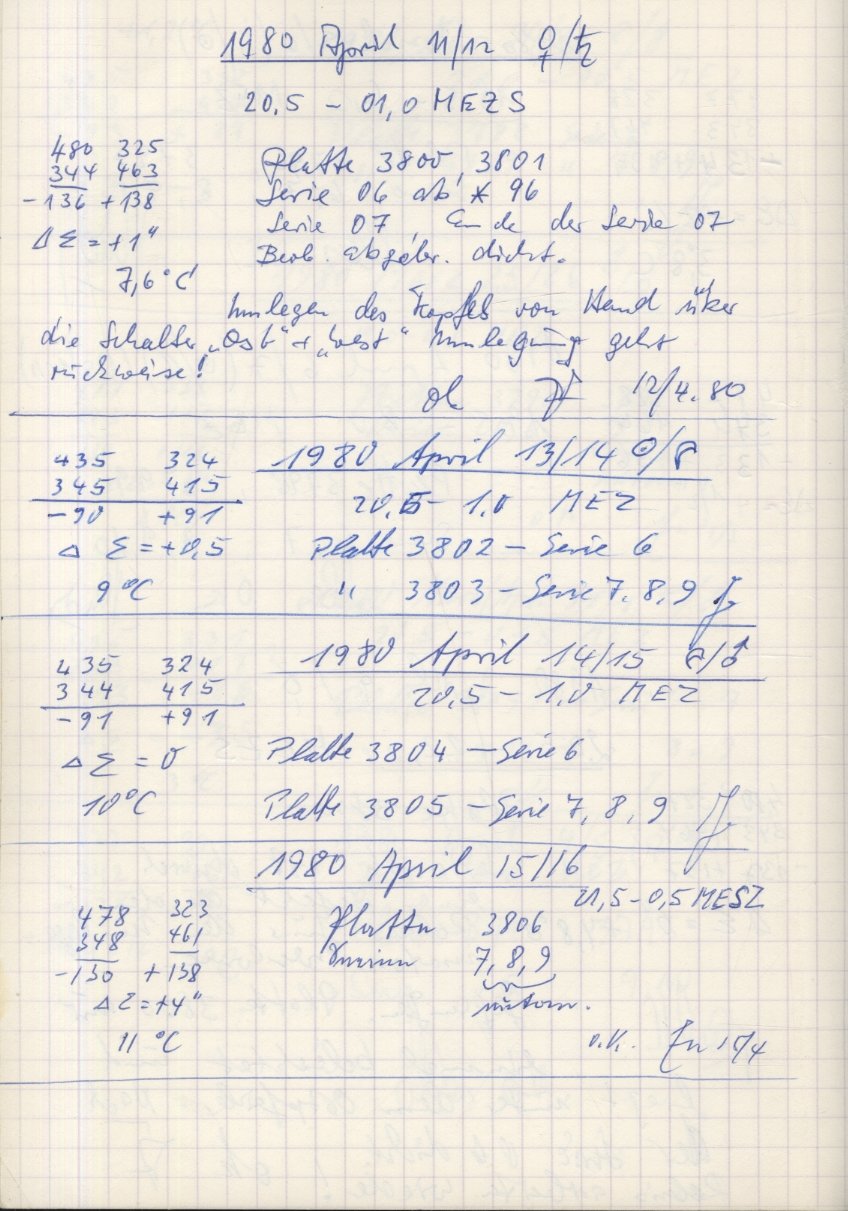 1980 April 11/12 ♀/♄
20,5 – 01,0 MEZS
480 325
344 463
-136 +138
Δ Σ = +1"
7,6°C
Platte 3800, 3801
Serie 06 ab * 96
Serie 07, Ende der Serie 07
Beob. abgebr. dicht.
Umlegen des Kopfes von Hand über
die Schalter „Ost“ + „West“ Umlegung geht
ruckweise!
ok 12/4.80
1980 April 13/14 ☉/
435 324
345 415
-90 +91
Δ Σ = +0,5
9°C
20,5 – 1,0 MEZ
Platte 3802 – Serie 6
" 3803 – Serie 7, 8, 9
1980 April 14/15 /♂
435 324
344 415
-91 +91
Δ Σ = 0
10°C
20,5 – 1,0 MEZ
Platte 3804 – Serie 6
Platte 3805 – Serie 7, 8, 9
1980 April 15/16
21,5 – 0,5 MESZ
478 323
348 461
-130 +138
Δ Σ = +4"
11 °C
Platte 3806
7, 8, 9
autom.
o.k. 15/4